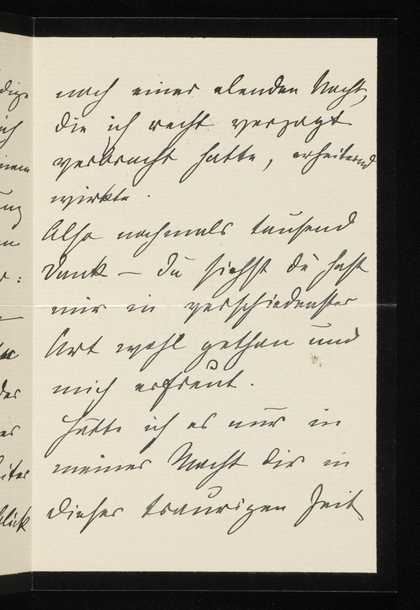 nach einer elenden Nacht,
die ich recht verzagt
verbracht hatte, erheiternd
wirkte.
Also nochmals tausend
Dank – du siehst du hast
mir in verschiedenster
Art wohl gethan und
mich erfreut.
Hätte ich es nur in
meiner Macht dir in
dieser traurigen Zeit